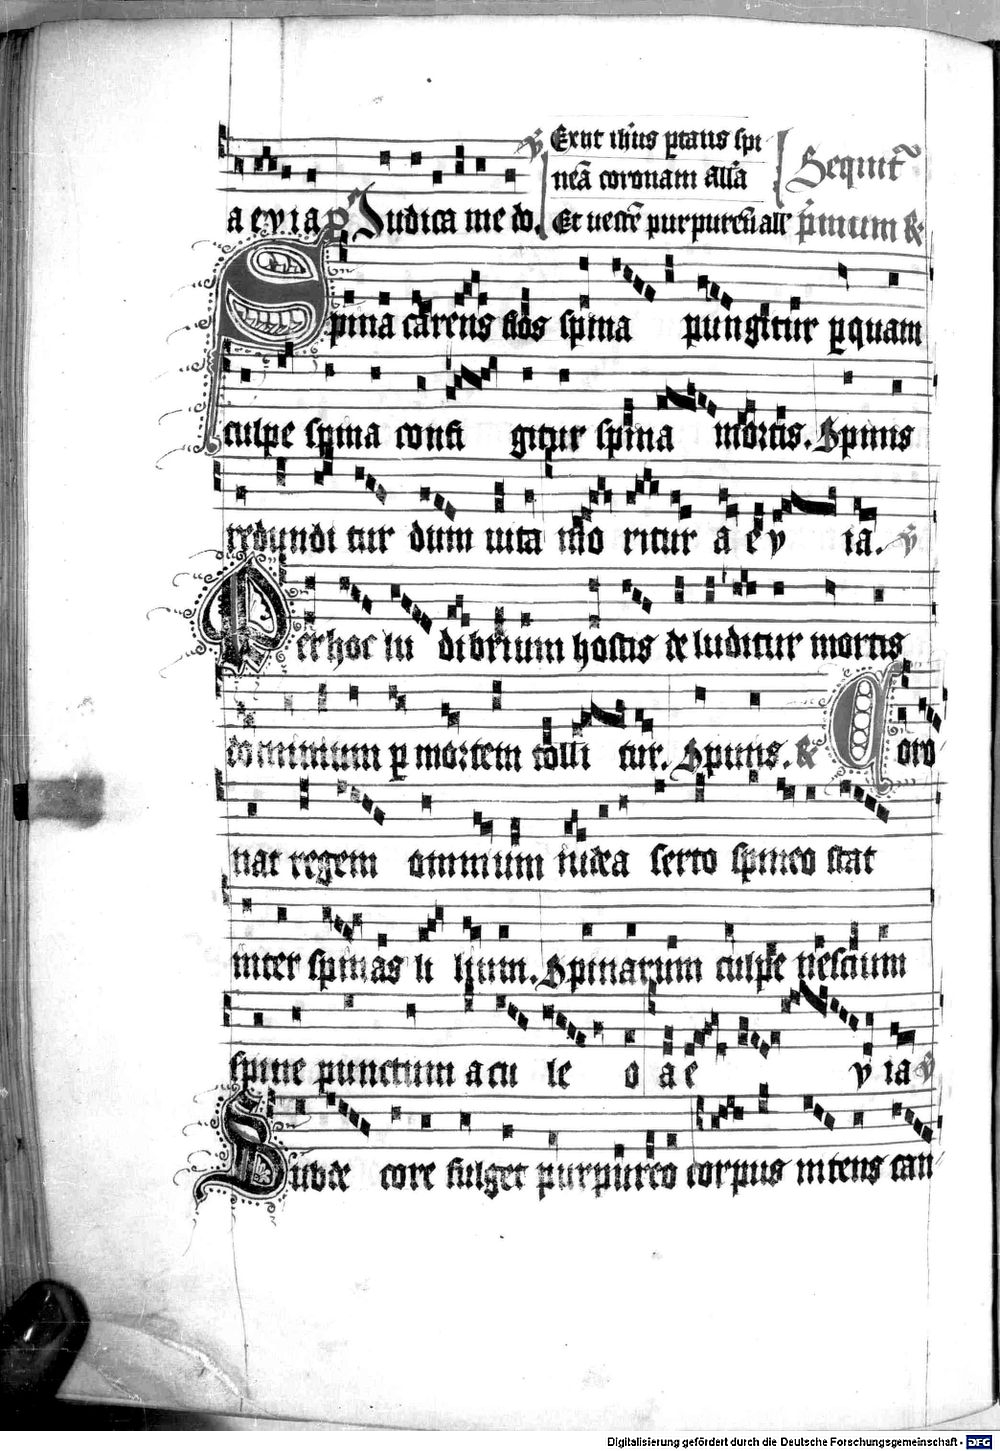 Exut ih'us ptans spi
neā coronam all'a
Sequit'
a e v i a p̄s Iudica me do.
Et ueste purpureū all' p'mum R'
Spina carens flos spina pungitur p quam
culpe spina confi gitur spina mortis. Spinis
redundi tur dum uita mo ritur a e v ia. V
Per hoc lu dibrium hostis de luditur mortis
dominium p mortem tolli tur. Spinis. R' Coro
nat regem omnium iudea serto spineo stat
inter spinas li lium. Spinarum culpe nescium
spine punctum acu le o a e v ia V
Subde core fulget purpureo corpus nitens can
Digitalisierung gefördert durch die Deutsche Forschungsgemeinschaft - DFG